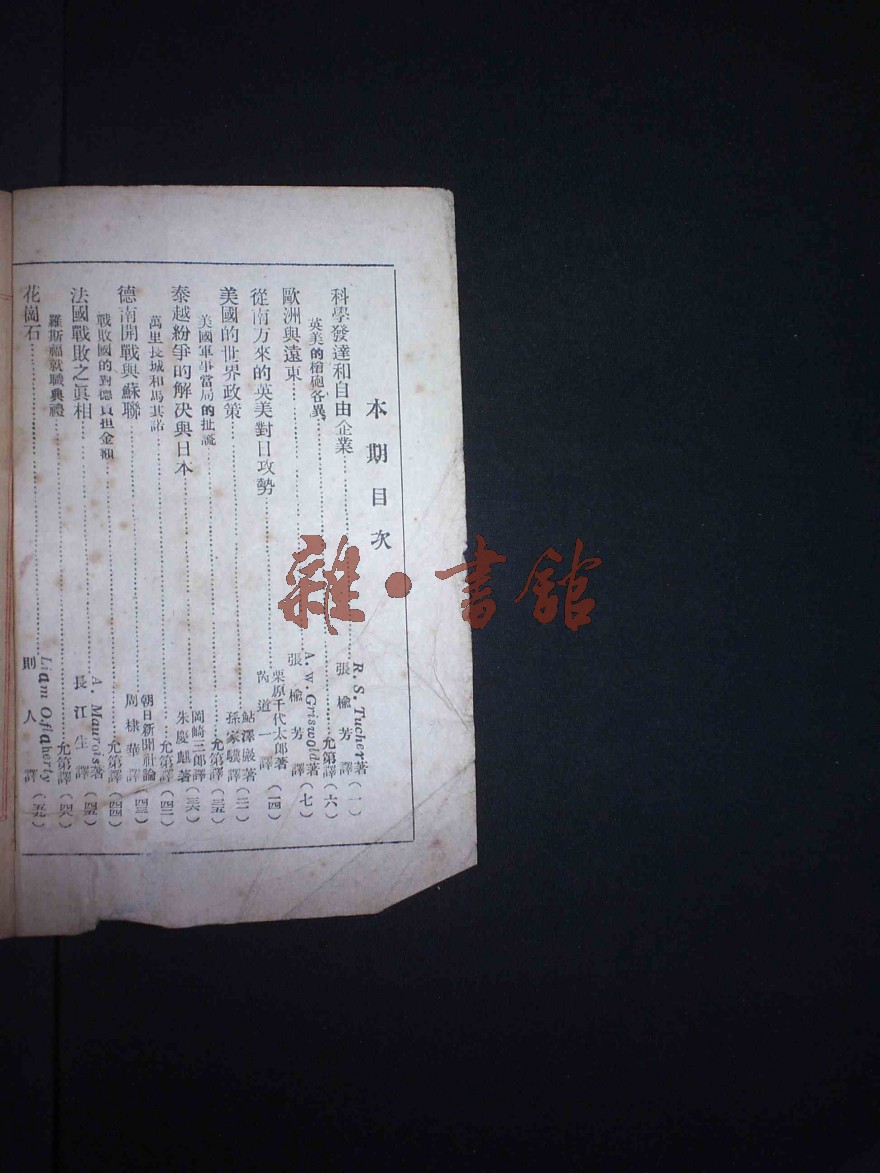 本期目次
科學發達和自由企業 R. S. Tucher著 張楡芳譯 (一)
英美的槍砲各異 允第譯 (六)
歐洲與遠東 A. W. Griswold著 張楡芳譯 (七)
從南方來的英美對日攻勢 栗原千代太郎著 芮道一譯 (一四)
美國的世界政策 鮎澤巖著 孫家驥譯 (二一)
美國軍事當局的扯謊 允第譯 (三五)
泰越紛爭的解決與日本 岡崎三郎著 朱慶麒譯 (三六)
萬里長城和馬其諾 允第譯 (四二)
德南開戰與蘇聯 朝日新聞社論 周棣華譯 (四三)
戰敗國的對德負担金額 允第譯 (四四)
法國戰敗之眞相 A. Maurois著 長江生譯 (四五)
羅斯福就職典禮 允第譯 (四六)
花崗石 Liam O.flaherty 則人譯 (五九)
雜·書舘